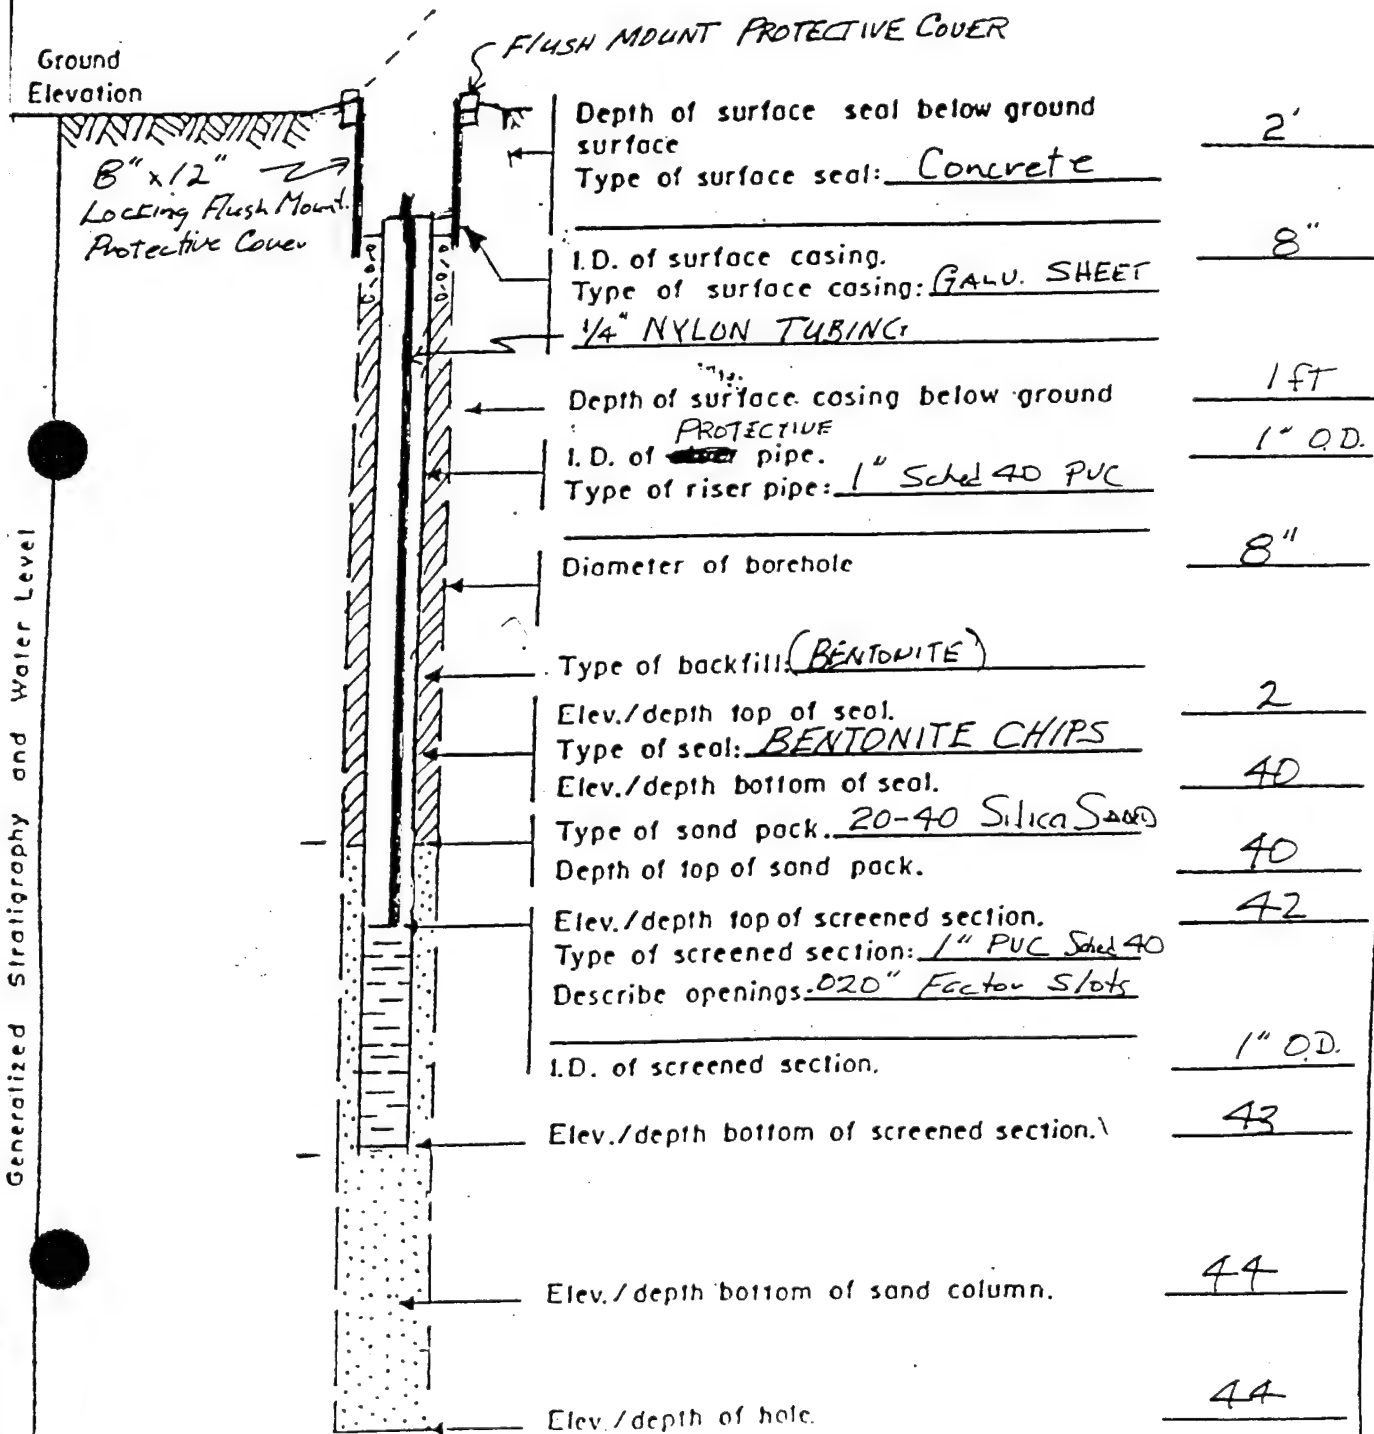 FLUSH MOUNT PROTECTIVE COVER
Ground
Elevation
8" x 12"
Locking Flush Mount
Protective Cover
Depth of surface seal below ground
surface
2'
Type of surface seal: Concrete
I.D. of surface casing.
8"
Type of surface casing: GALV. SHEET
1/4" NYLON TUBING
Depth of surface casing below ground
1 fT
PROTECTIVE
I.D. of pipe.
1" O.D.
Type of riser pipe: 1" Sched 40 PVC
Diameter of borehole
8"
Type of backfill: (BENTONITE)
Elev./depth top of seal.
2
Type of seal: BENTONITE CHIPS
Elev./depth bottom of seal.
40
Type of sand pack. 20-40 Silica SAND
Depth of top of sand pack.
40
Elev./depth top of screened section.
42
Type of screened section: 1" PVC Sched 40
Describe openings. .020" Slots
I.D. of screened section.
1" O.D.
Elev./depth bottom of screened section.
43
Elev./depth bottom of sand column.
44
Elev./depth of hole.
44
Generalized Stratigraphy and Water Level